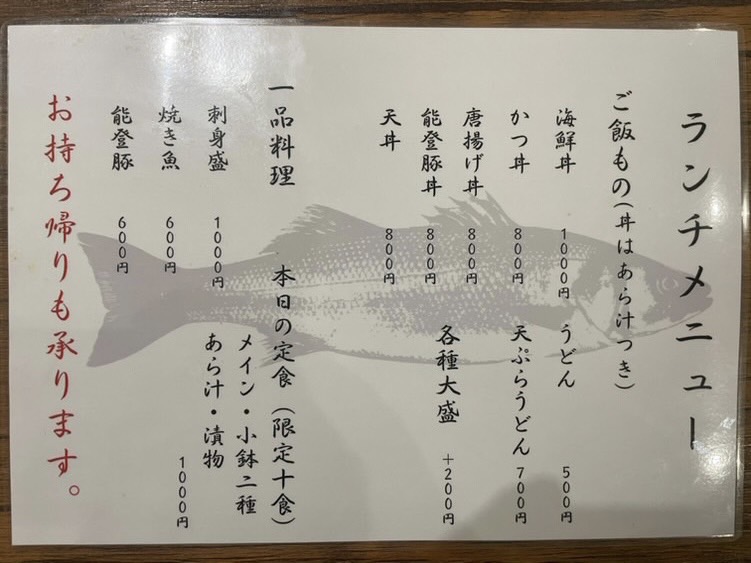 ランチメニュー
ご飯もの(丼はあら汁つき)
海鮮丼 1000円
かつ丼 800円
唐揚げ丼 800円
能登豚丼 800円
天丼 800円
うどん 500円
天ぷらうどん 700円
各種大盛 +200円
一品料理
刺身盛 1000円
焼き魚 600円
能登豚 600円
本日の定食(限定十食)
メイン・小鉢二種
あら汁・漬物
1000円
お持ち帰りも承ります。